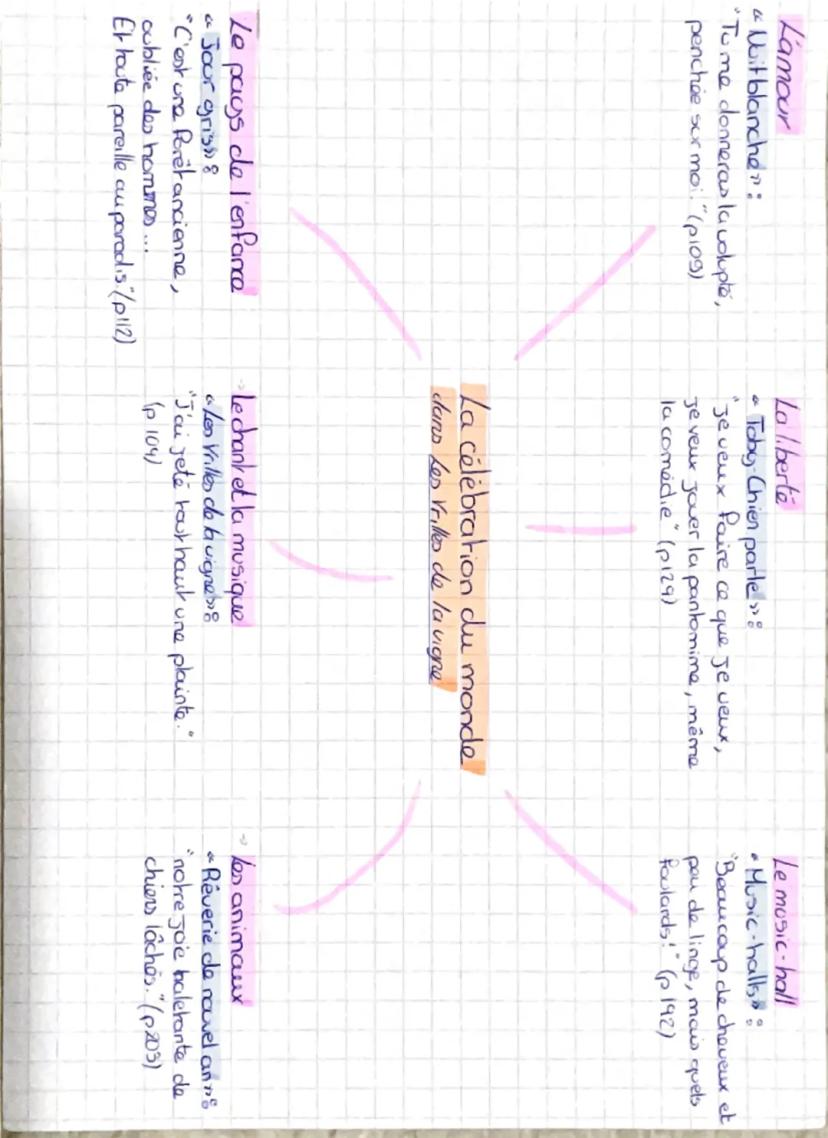 L'amour
« Nuit blanche » :
"Tu me donneras la volupté,
penchée sur moi." (p109)
La liberté
« Toby-Chien parle » :
"je veux faire ce que je veux,
je veux jouer la pantomime, même
la comédie" (p129)
Le music-hall
« Music-halls » :
"Beaucoup de cheveux et
peu de linge, mais quels
foulards!" (p192)
La célébration du monde
dans Les Vrilles de la vigne
Le pays de l'enfance
« Jour gris » :
"C'est une forêt ancienne,
oubliée des hommes...
Et toute pareille au paradis." (p112)
Le chant et la musique
« Les Vrilles de la vigne » :
"J'ai jeté tout haut une plainte."
(p104)
Les animaux
« Rêverie de nouvel an » :
"notre joie haletante de
chiens lâchés." (p203)